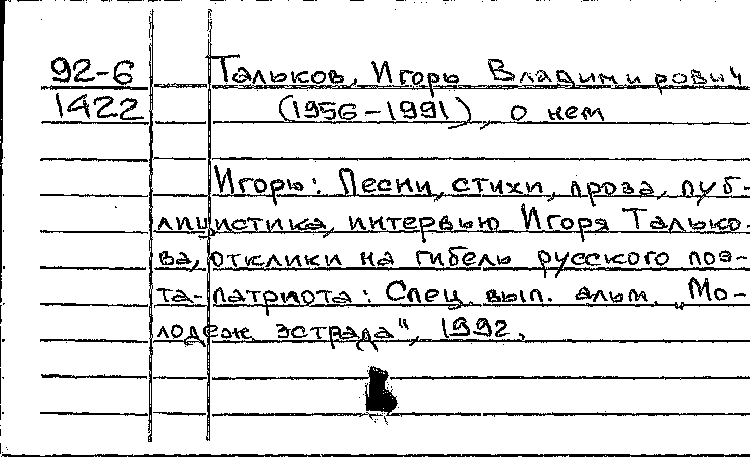 92-6 Тальков, Игорь Владимирович
1422 (1956-1991), о нем
Игорь: Песни, стихи, проза, пуб-
лицистика, интервью Игоря Талько-
ва, отклики на гибель русского поэ-
та-патриота: Спец. вып. альм. „Мо-
лодеж эстрада", 1992.